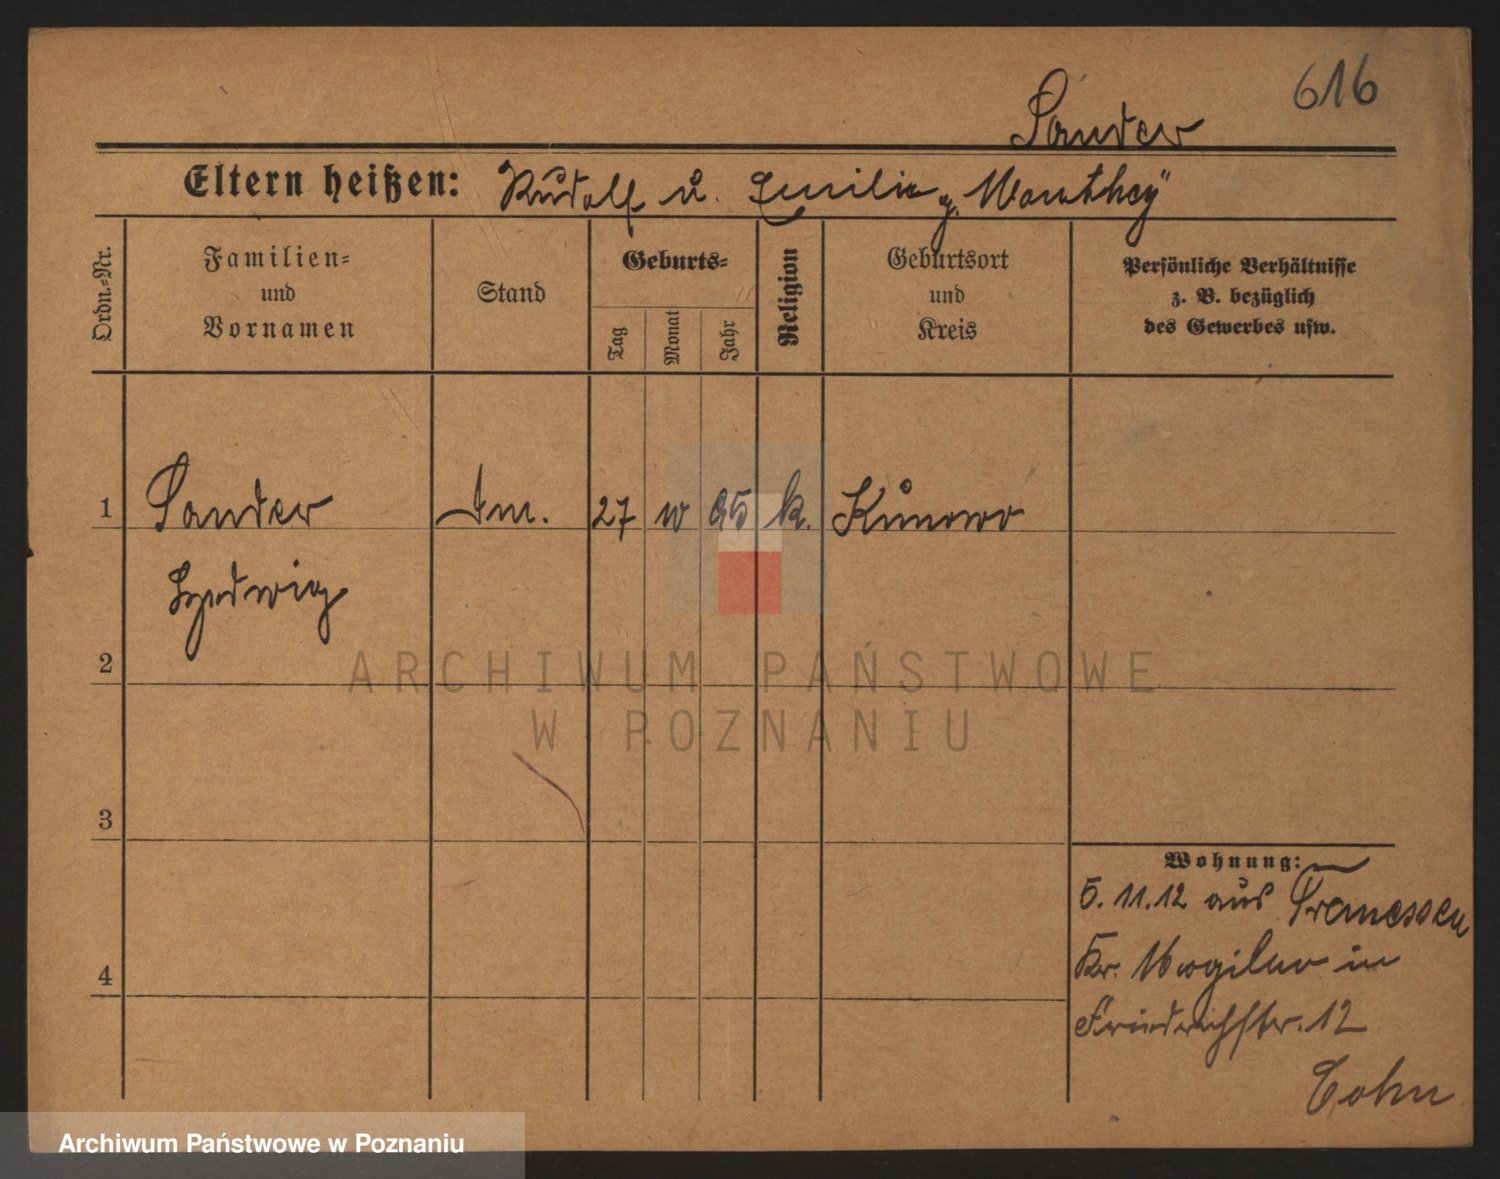 616
Sander
Eltern heißen: Rudolf u. Emilie g. "Manthey"
Ordn.-Nr.
Familien-
und
Vornamen
Stand
Geburts-
Tag
Monat
Jahr
Religion
Geburtsort
und
Kreis
Persönliche Verhältnisse
z. B. bezüglich
des Gewerbes usw.
1
Sander
27
95
k.
Kunowo
Hedwig
2
ARCHIWUM PAŃSTWOWE
W POZNANIU
3
Wohnung:
5. 11. 12 aus Tremessen
Kr. Mogilno in
4
Friedrichstr. 12
Cohn
Archiwum Państwowe w Poznaniu